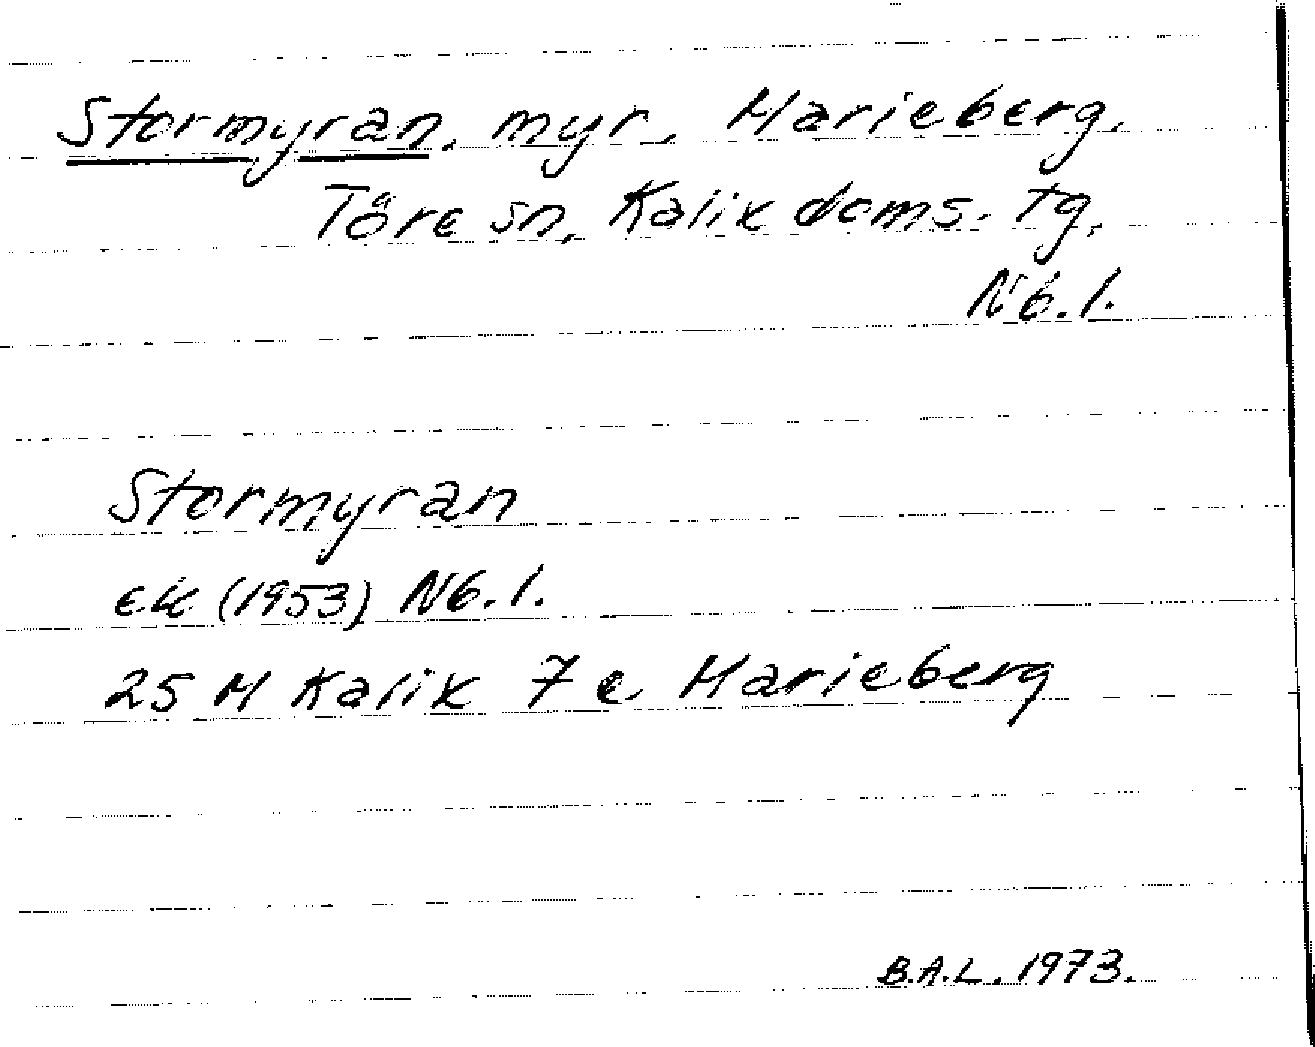 Stormyran, myr, Marieberg,
Töre sn, Kalix doms. tg.
Nb. l.
Stormyran
ek (1953) Nb. l.
25 M Kalix 7 e Marieberg
B.A.L. 1973.